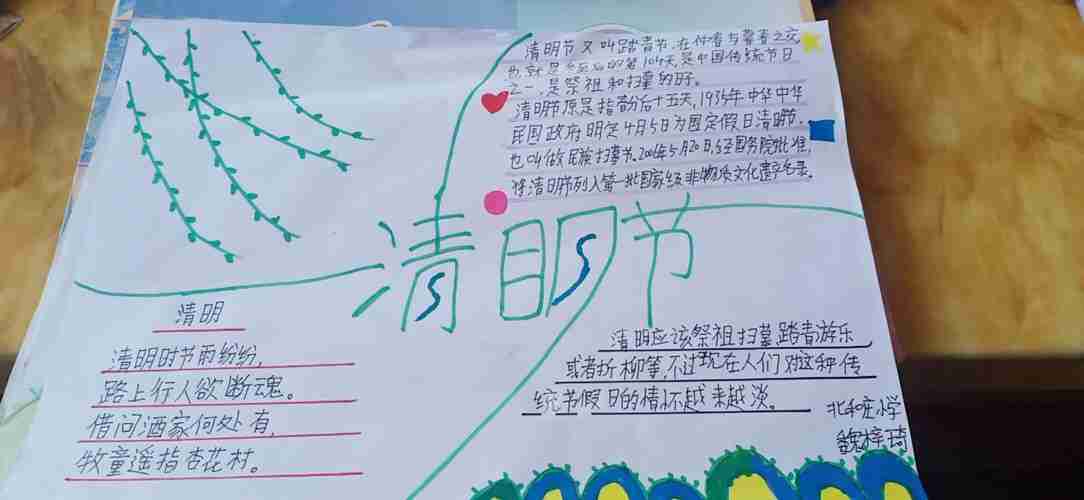 清明节又叫踏青节,在仲春与暮春之交
也就是冬至后的第104天,是中国传统节日
之一,是祭祖和扫墓的日子。
清明节原是指春分后十五天,1935年中华中华
民国政府明定4月5日为国定假日清明节,
也叫做民族扫墓节。2006年5月20日,经国务院批准,
将清明节列入第一批国家级非物质文化遗产名录。
清明节
清明
清明时节雨纷纷,
路上行人欲断魂。
借问酒家何处有,
牧童遥指杏花村。
清明应该祭祖扫墓踏青游乐
或者折柳等,不过现在人们对这种传
统节假日的情怀越来越淡。
北和庄小学
魏梓琦